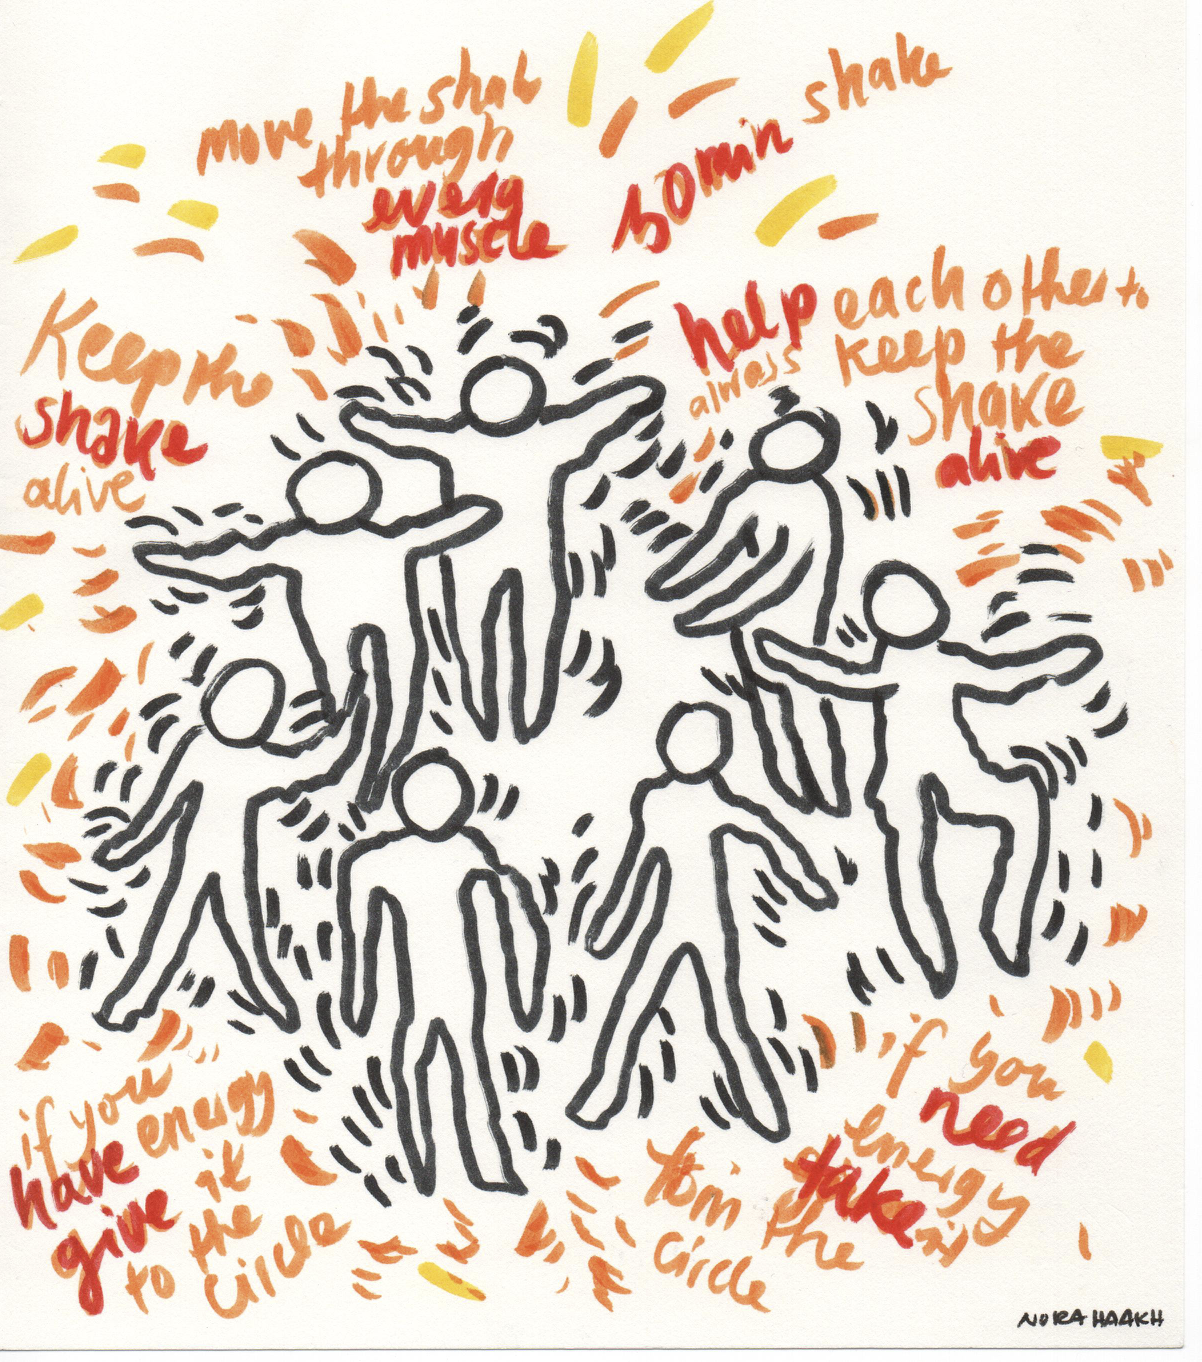 move the shake
through
every
muscle
30 min shake
Keep the
shake
alive
help each other to
always keep the
shake
alive
if you
have energy
give it
to the
circle
if you
need
energy
take it
from the
circle
NORA HAAKH